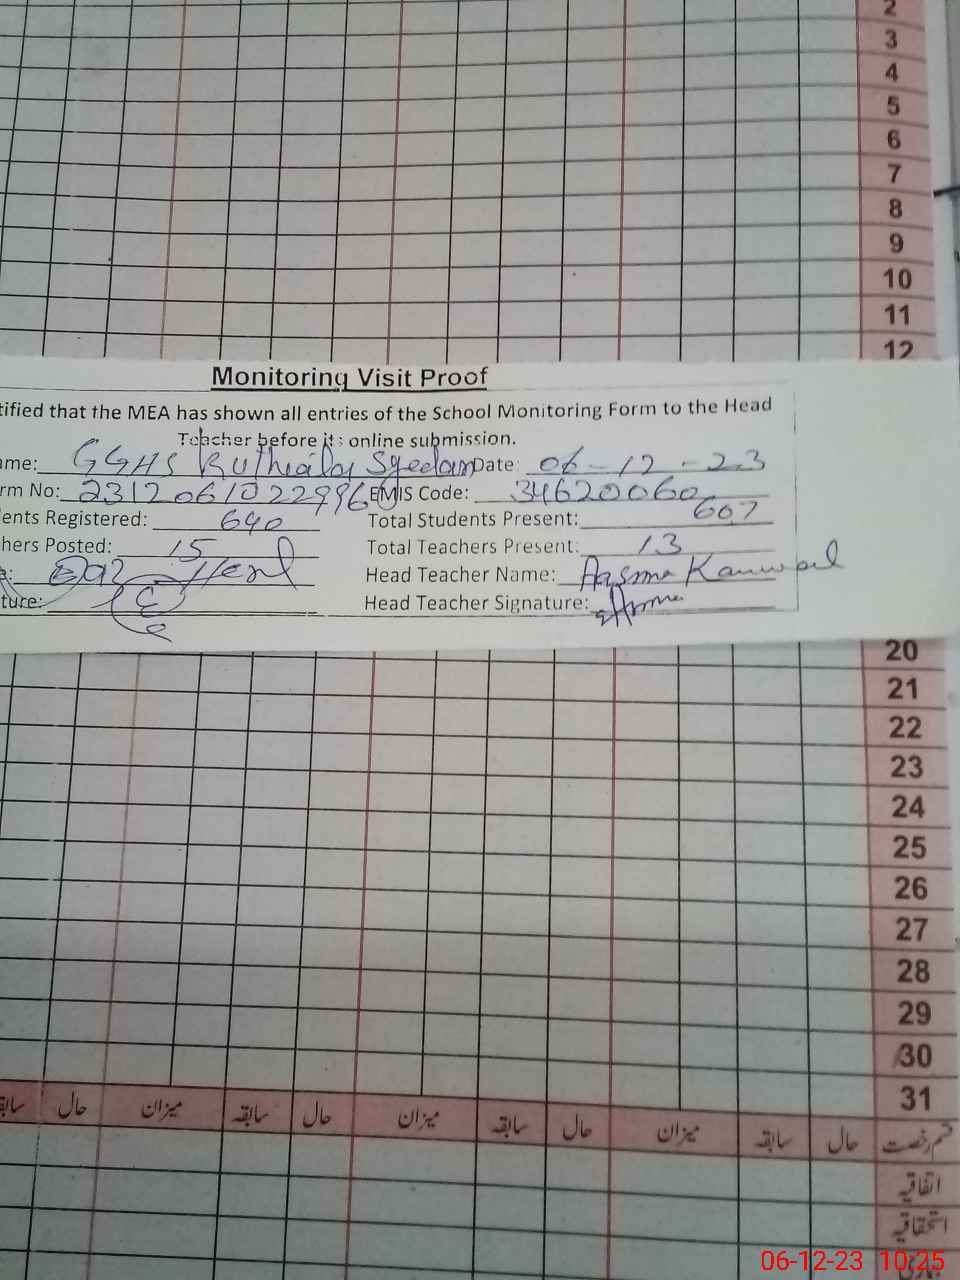 2
3
4
5
6
7
8
9
10
11
12
Monitoring Visit Proof
tified that the MEA has shown all entries of the School Monitoring Form to the Head
Teacher before it: online submission.
ame: GGHS Syedan Date: 06-12-23
rm No: EMIS Code: 34620060
ents Registered: 640 Total Students Present: 607
hers Posted: 15 Total Teachers Present: 13
Head Teacher Name: Aasma Kanwal
ture: Head Teacher Signature:
20
21
22
23
24
25
26
27
28
29
30
31
قسم رخصت حال سابقہ میزان حال سابقہ میزان حال سابقہ میزان حال سابقہ
اتفاقیہ
استحقاقیہ
06-12-23 10:25